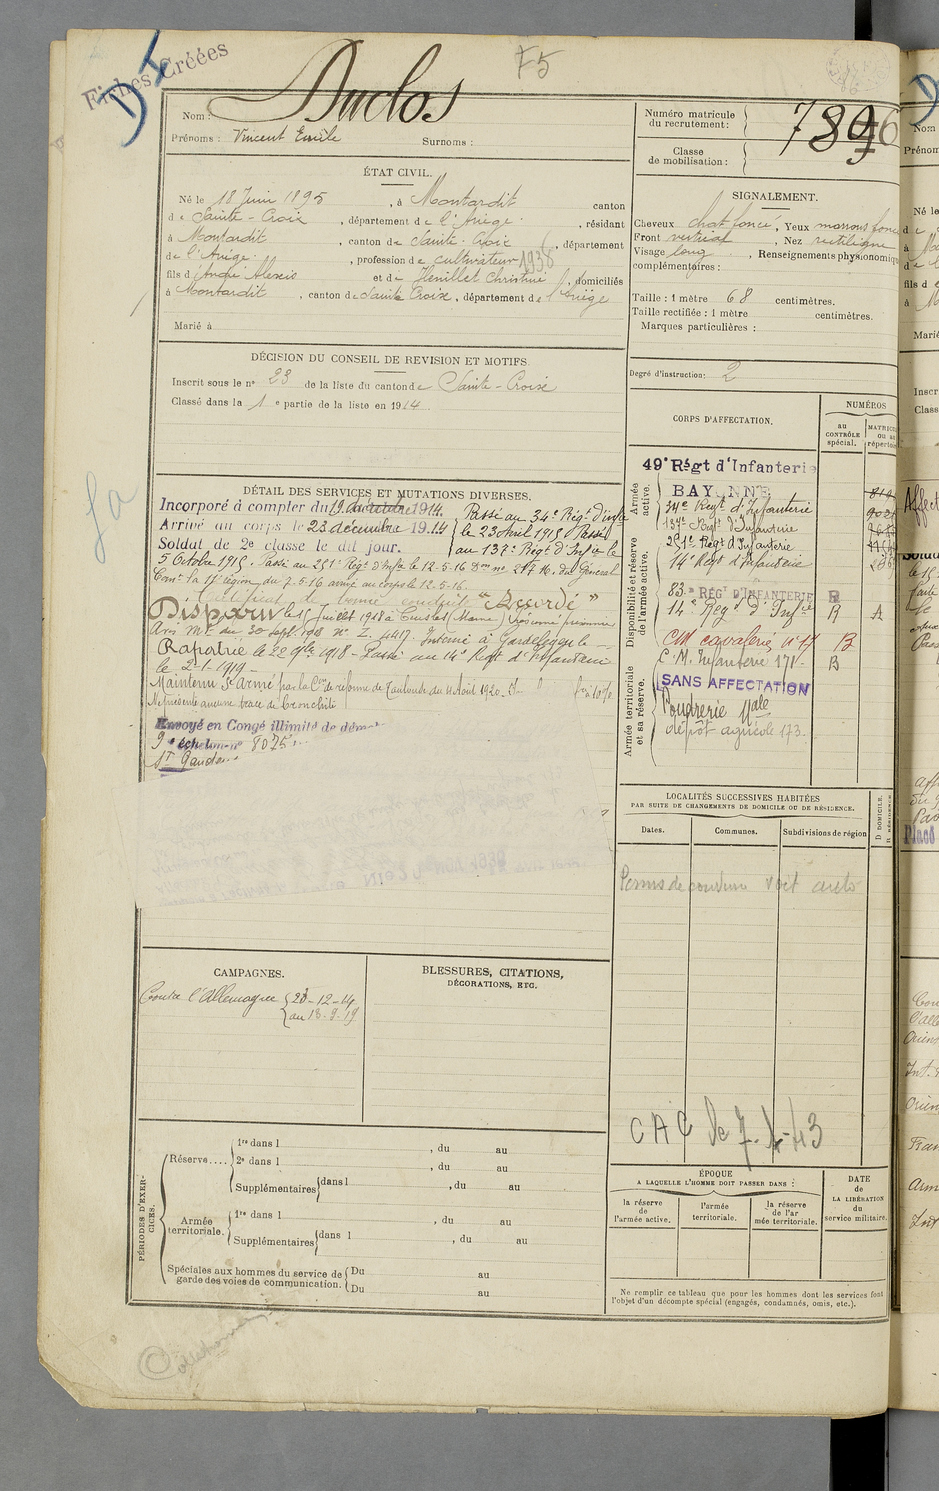 Fiches Créées
75
Nom : Duclos
Prénoms : Vincent Emile Surnoms :
Numéro matricule
du recrutement :
789
Classe
de mobilisation :
ÉTAT CIVIL.
Né le 18 Juin 1895, à Montardit canton
de Sainte-Croix, département de l'Ariège, résidant
à Montardit, canton de Sainte-Croix, département
de l'Ariège, profession de cultivateur 1938
fils d'André Alexis et de Christine, domiciliés
à Montardit, canton de Sainte Croix, département de l'Ariège
Marié à
SIGNALEMENT.
Cheveux chat. foncé, Yeux marrons
Front vertical, Nez rectiligne
Visage long, Renseignements physionomiq
complémentaires :
Taille : 1 mètre 68 centimètres.
Taille rectifiée : 1 mètre centimètres.
Marques particulières :
DÉCISION DU CONSEIL DE REVISION ET MOTIFS.
Inscrit sous le n° 23 de la liste du canton de Sainte-Croix
Classé dans la 1 e partie de la liste en 1914.
Degré d'instruction : 2
DÉTAIL DES SERVICES ET MUTATIONS DIVERSES.
Incorporé à compter du 19 1914.
Arrivé au corps le 23 décembre 1914
Soldat de 2e classe le dit jour.
Passé au 34e Rég. d'inf
le 23 Avril 1915 Passé
au 137e Régt d'Infie le
5 Octobre 1915. Passé au 251e Régt d'Infie le 12-5-16 du Général
Comt la 17 région du 7-5-16 arrivé au corps le 12-5-16.
Certificat de bonne conduite "Accordé"
Disparu le 15 Juillet 1918 à (Marne) présumé prisonnier
Avis Mel du 30 Sept 1918 n° Z. 4417. Interné à Gardelegen
Rapatrié le 22 9bre 1918 - Passé au 14e Regt d'Infanterie
le 2-1-1919 -
Maintenu S. Armé par la Con de réforme de Toulouse du 4 Août 1920. 10 %
Ne présente aucune trace de bronchite
Envoyé en Congé illimité de
9e échelon n° 8025
St Gaudens
CORPS D'AFFECTATION.
NUMÉROS
au
CONTRÔLE
spécial.
MATRICULE
ou au
répertoire
Armée
active.
49e Régt d'Infanterie
BAYONNE
34e Regt d'Infanterie
137e Regt d'Infanterie
251e Regt d'Infanterie
14e Regt d'Infanterie
Disponibilité et réserve
de l'armée active.
83e RÉGt D'INFANTERIE R
14e Regt d'Infie R A
CM cavalerie n° 17 B
C. M. Infanterie 171 - B
Armée territoriale
et sa réserve.
SANS AFFECTATION
Poudrerie Nale
dépôt agricole 173.
LOCALITÉS SUCCESSIVES HABITÉES
PAR SUITE DE CHANGEMENTS DE DOMICILE OU DE RÉSIDENCE.
Dates. Communes. Subdivisions de région
D DOMICILE.
R RÉSIDENCE
Permis de conduire voit auto
CAMPAGNES.
Contre l'Allemagne 23-12-14
au 13-9-19
BLESSURES, CITATIONS,
DÉCORATIONS, ETC.
C A C le 7.1-43
PÉRIODES D'EXERCICES.
Réserve....
1re dans l , du au
2e dans l , du au
Supplémentaires dans l , du au
Armée
territoriale.
1re dans l , du au
Supplémentaires dans l , du au
Spéciales aux hommes du service de
garde des voies de communication.
Du au
Du au
ÉPOQUE
A LAQUELLE L'HOMME DOIT PASSER DANS :
la réserve
de
l'armée active.
l'armée
territoriale.
la réserve
de l'ar
mée territoriale.
DATE
de
LA LIBÉRATION
du
service militaire.
Ne remplir ce tableau que pour les hommes dont les services font
l'objet d'un décompte spécial (engagés, condamnés, omis, etc.).